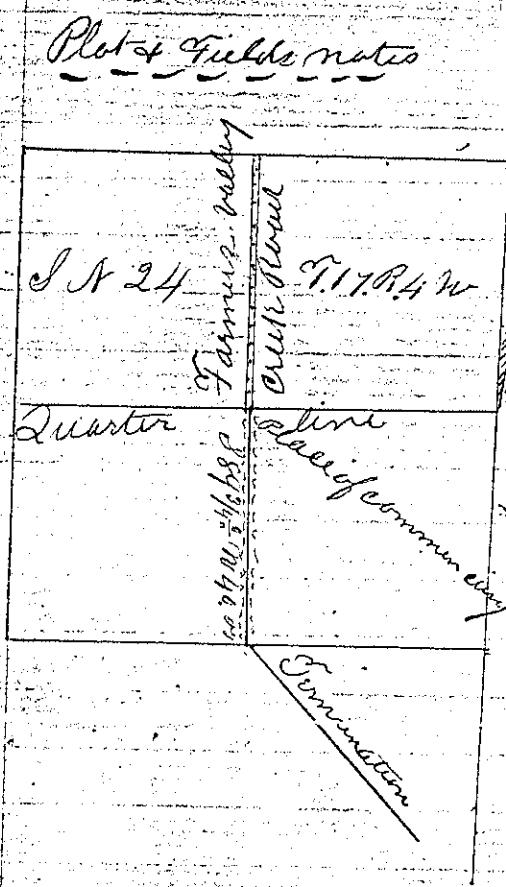 Plat & Fields notes
Farmers Valley
Creek Road
S N 24
T.17.R.4 W
Quarter
line
Place of commencing
Termination